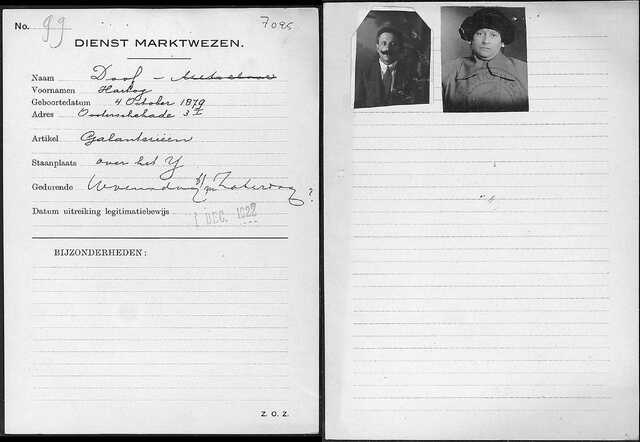 No. 99 7095
DIENST MARKTWEZEN.
Naam Dool -
Voornamen Hartog
Geboortedatum 4 October 1879
Adres Oosterschekade 3 I
Artikel Galanterieën
Staanplaats over het Y
Gedurende Woensdag t/m Zaterdag ?
Datum uitreiking legitimatiebewijs 1 DEC. 1922
BIJZONDERHEDEN:
Z. O. Z.